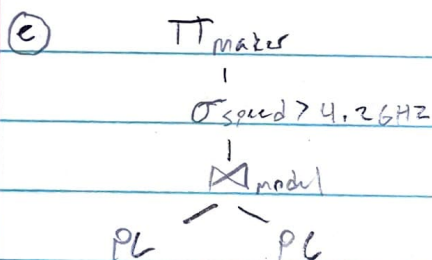 e Π maker
σ speed > 4.2GHZ
⋈ model
PC PC